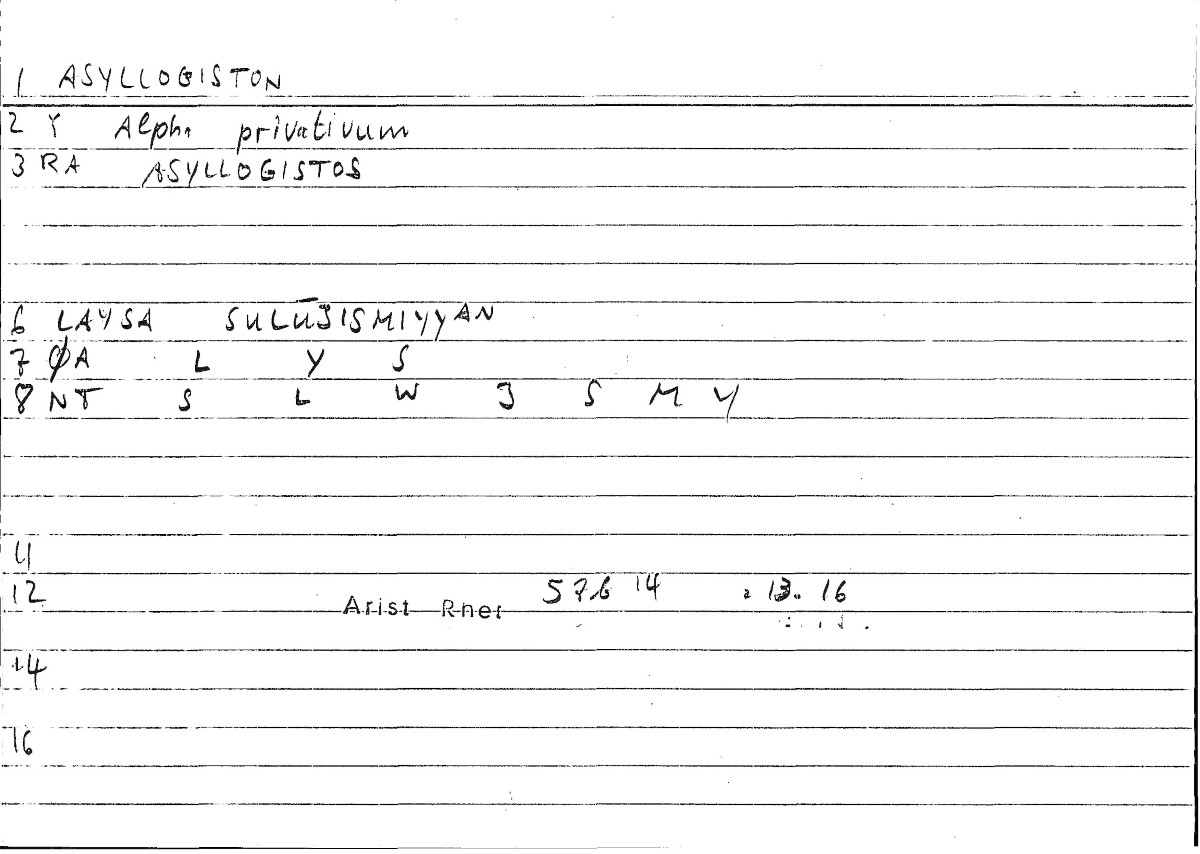 1 ASYLLOGISTON
2 Y Alpha privativum
3 RA ASYLLOGISTOS
6 LAYSA SULŪJISMIYYAN
7 ØA L Y S
8 NT S L W J S M Y
11
12 Arist Rhet 57b 14 : 13. 16
14
16